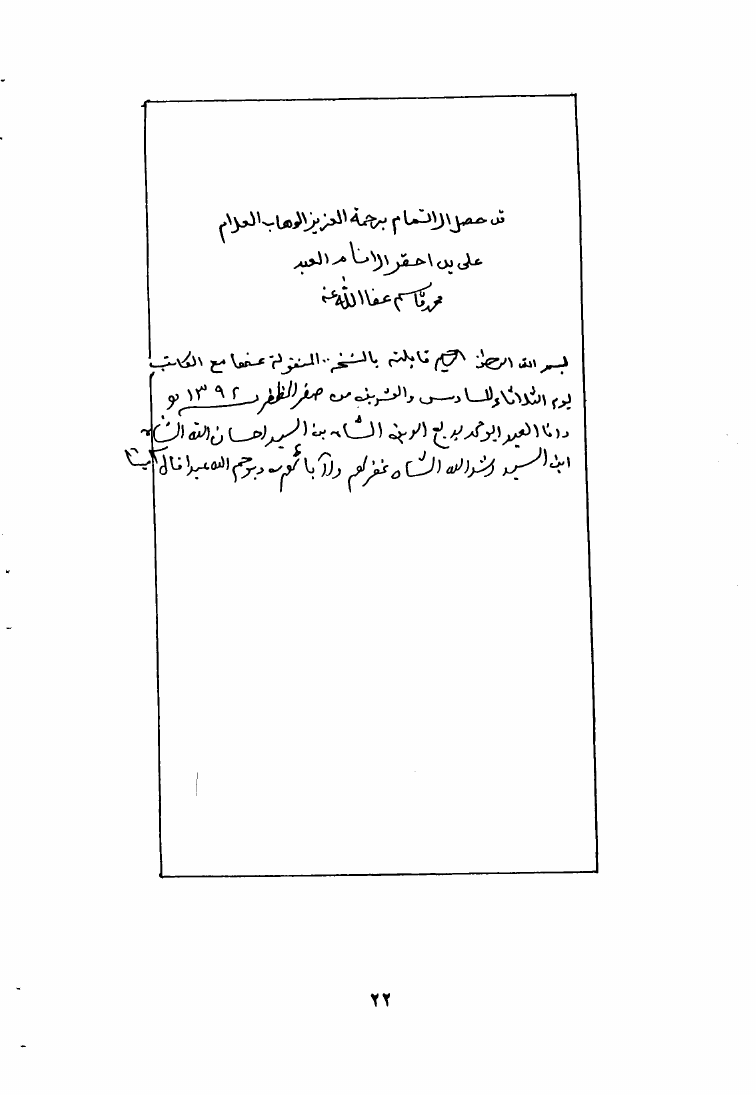 قد حصل الاتمام برحمة العزيز الوهاب العلام
على يد احقر الانام العبد
محمد قاسم عفا الله عنه
بسم الله الرحمن الرحيم قابلته بالنسخة المنقولة عنها مع الكاتب
يوم الثلاثاء السادس والعشرين من صفر المظفر ١٣٩٢
وانا العبد ابو محمد بديع الدين الشاه بن السيد احسان الله الشاه
ابن السيد رشد الله الشاه غفر لهم ولآبائهم ويرحم الله عبدا قال آمينا
٢٢